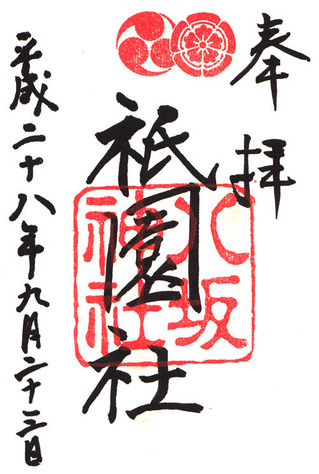 奉拝
八坂
神社
祇園社
平成二十八年九月二十三日